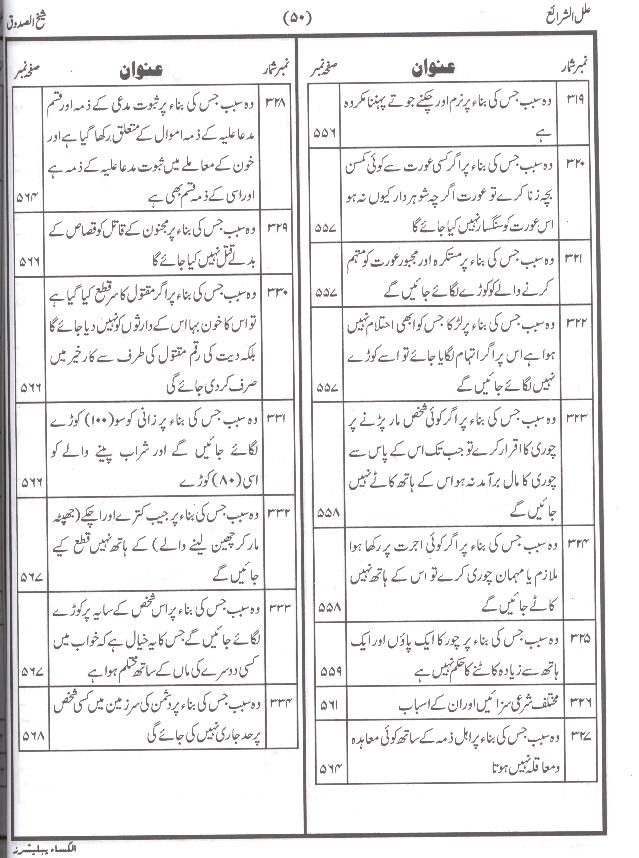 علل الشرائع (۵۰) شیخ الصدوق
نمبر شمار عنوان صفحہ نمبر
۳۱۹ وہ سبب جس کی بناء پر نرم اور چکنے جوتے پہننا مکروہ
ہے ۵۵۶
۳۲۰ وہ سبب جس کی بناء پر اگر کسی عورت سے کوئی کمسن
بچہ زنا کرے تو عورت اگر چہ شوہر دار کیوں نہ ہو
اس عورت کو سنگسار نہیں کیا جائے گا ۵۵۷
۳۲۱ وہ سبب جس کی بناء پر مستکرہ اور مجبور عورت کو متہم
کرنے والے کو کوڑے لگائے جائیں گے ۵۵۷
۳۲۲ وہ سبب جس کی بناء پر لڑکا جس کو ابھی احتلام نہیں
ہوا ہے اس پر اگر اتہام لگایا جائے تو اسے کوڑے
نہیں لگائے جائیں گے ۵۵۷
۳۲۳ وہ سبب جس کی بناء پر اگر کوئی شخص مار پڑنے پر
چوری کا اقرار کرے تو جب تک اس کے پاس سے
چوری کا مال برآمد نہ ہو اس کے ہاتھ کاٹے نہیں
جائیں گے ۵۵۸
۳۲۴ وہ سبب جس کی بناء پر اگر کوئی اجرت پر رکھا ہوا
ملازم یا مہمان چوری کرے تو اس کے ہاتھ نہیں
کاٹے جائیں گے ۵۵۸
۳۲۵ وہ سبب جس کی بناء پر چور کا ایک پاؤں اور ایک
ہاتھ سے زیادہ کاٹنے کا حکم نہیں ہے ۵۵۹
۳۲۶ مختلف شرعی سزائیں اور ان کے اسباب ۵۶۱
۳۲۷ وہ سبب جس کی بناء پر اہل ذمہ کے ساتھ کوئی معاہدہ
و معاقلہ نہیں ہوتا ۵۶۴
نمبر شمار عنوان صفحہ نمبر
۳۲۸ وہ سبب جس کی بناء پر ثبوت مدعی کے ذمہ اور قسم
مدعا علیہ کے ذمہ اموال کے متعلق رکھا گیا ہے اور
خون کے معاملے میں ثبوت مدعا علیہ کے ذمہ ہے
اور اسی کے ذمہ قسم بھی ہے ۵۶۴
۳۲۹ وہ سبب جس کی بناء پر مجنون کے قاتل کو قصاص کے
بدلے قتل نہیں کیا جائے گا ۵۶۶
۳۳۰ وہ سبب جس کی بناء پر اگر مقتول کا سر قطع کیا گیا ہے
تو اس کا خون بہا اس کے وارثوں کو نہیں دیا جائے گا
بلکہ دیت کی رقم مقتول کی طرف سے کار خیر میں
صرف کر دی جائے گی ۵۶۶
۳۳۱ وہ سبب جس کی بناء پر زانی کو سو (۱۰۰) کوڑے
لگائے جائیں گے اور شراب پینے والے کو
اسی (۸۰) کوڑے ۵۶۶
۳۳۲ وہ سبب جس کی بناء پر جیب کترے اور اچکے (جھپٹہ
مار کر چھین لینے والے) کے ہاتھ نہیں قطع کیے
جائیں گے ۵۶۷
۳۳۳ وہ سبب جس کی بناء پر اس شخص کے سایہ پر کوڑے
لگائے جائیں گے جس کا یہ خیال ہے کہ خواب میں
کسی دوسرے کی ماں کے ساتھ محتلم ہوا ہے ۵۶۷
۳۳۴ وہ سبب جس کی بناء پر دشمن کی سرزمین میں کسی شخص
پر حد جاری نہیں کی جائے گی ۵۶۸
الکساء پبلیشرز